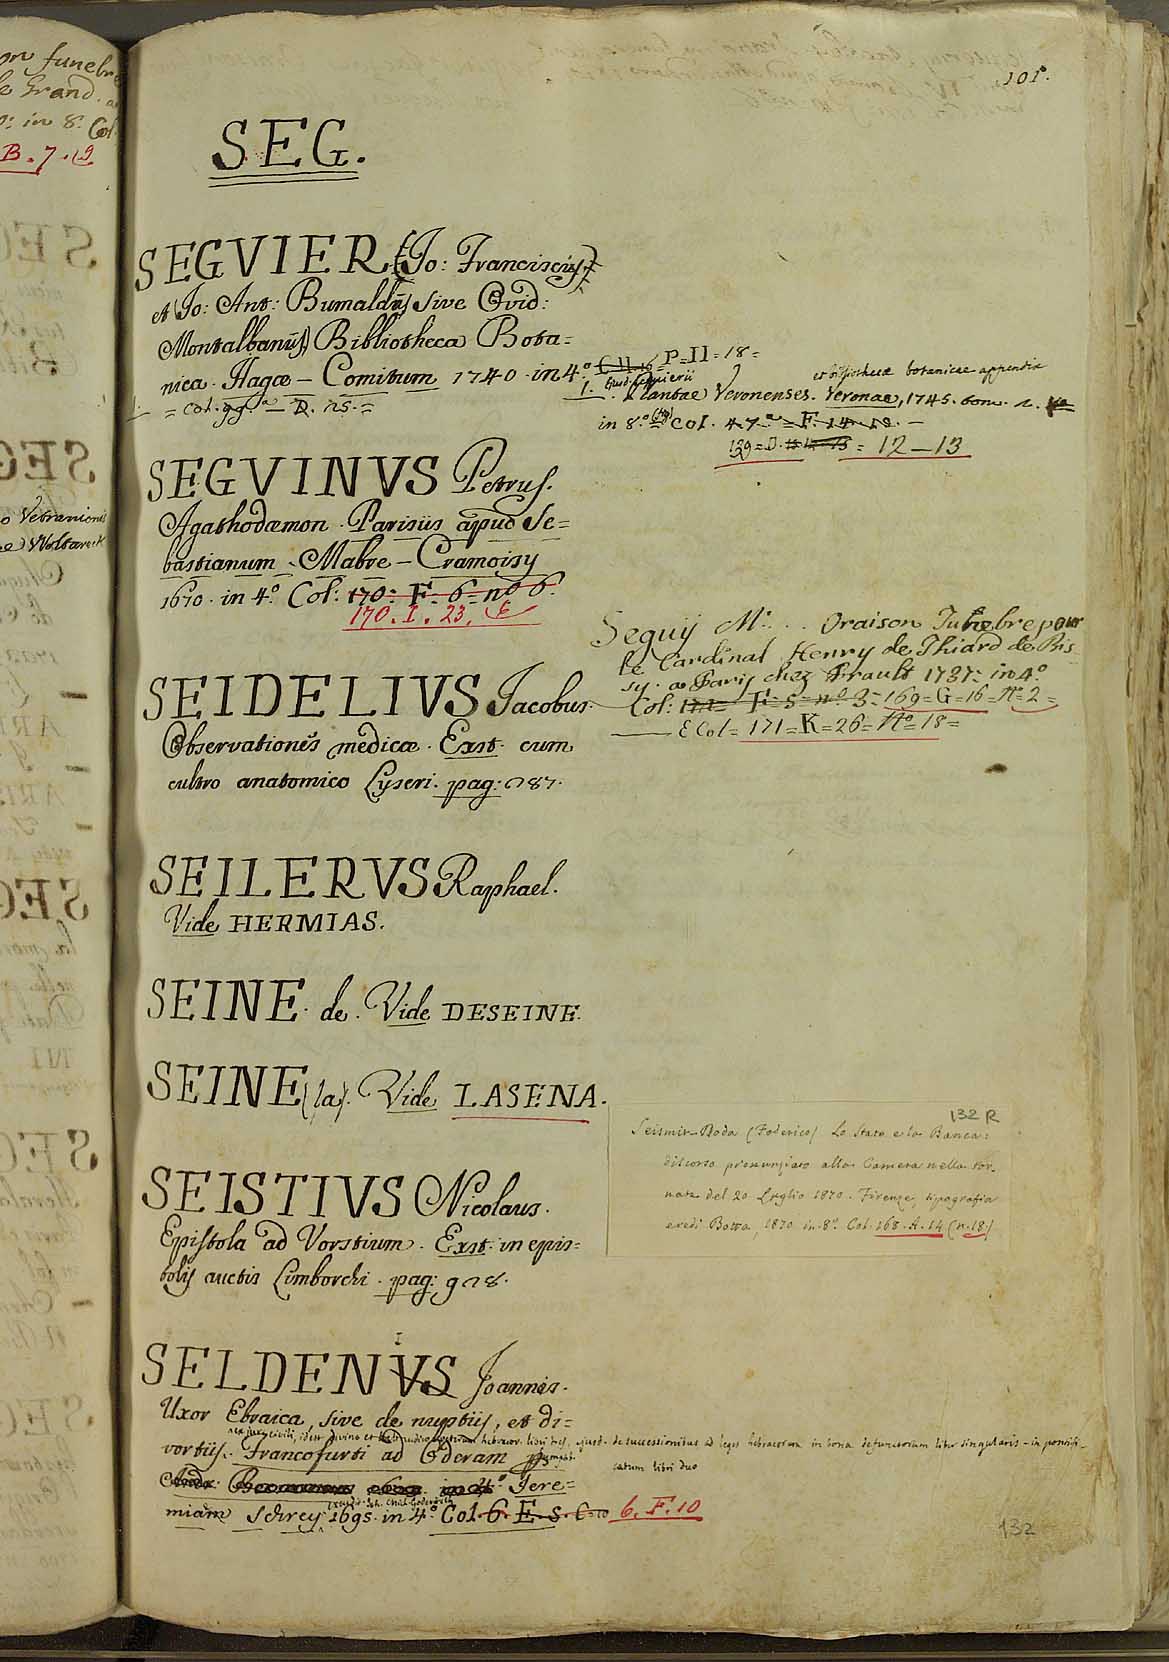 101.
SEG.
SEGVIER (Jo: Franciscus)
et Jo: Ant: Bumaldus sive Ovid:
Montalbanus) Bibliotheca Bota=
nica. Hagæ – Comitum 1740. in 4.º P=II=18=
= Col. 99
et bibliothecæ botanicæ appendix
ejusd. Seguierii
Plantae Veronenses. Veronae, 1745. tom. 2.
in 8.º Col. 47.ª = F. 14. 12. –
139 = = 12 – 13
SEGVINVS Petrus.
Agathodæmon. Parisiis apud Se=
bastianum Mabre – Cramoisy
1670. in 4.º Col: 170: F. 6. nº 6.
170. I. 23.
Seguy Mr. . . Oraison Funebre pour
le Cardinal Henry de Thiard de Bis
sy. a Paris chez Prault 1737= in 4º
Col: F= 5= nº 3= 169=G=16=Nº=2=
E Col= 171=K=26=Nº=18=
SEIDELIVS Jacobus.
Observationes medicæ. Exst. cum
cultro anatomico Lyseri. pag: 287.
SEILERVS Raphael.
Vide HERMIAS.
SEINE. de. Vide DESEINE.
SEINE (la). Vide LASENA.
132 R
Seismit-Doda (Federico) Lo Stato e la Banca:
discorso pronunziato alla Camera nella tor-
nata del 20 Luglio 1870. Firenze, tipografia
eredi Botta, 1870 in 8º. Col. 168. A. 14 (n. 18)
SEISTIVS Nicolaus.
Epistola ad Vorstium. Exst: in epis=
tolis auctis Limborchi. pag: 928.
SELDENVS Joannis.
I
Uxor Ebraica, sive de nuptiis, et di=
ex jure civili, idest divino et veterum hebraeor. libri tres, ejusd. de successionibus ad leges hebraeorum in bona defunctorum liber singularis – in pontifi-
vortiis. Francofurti ad Oderam
catum libri duo
Jere=
miam Schrey 1695. in 4º Col. 6. E. 5. 6. F. 10
132